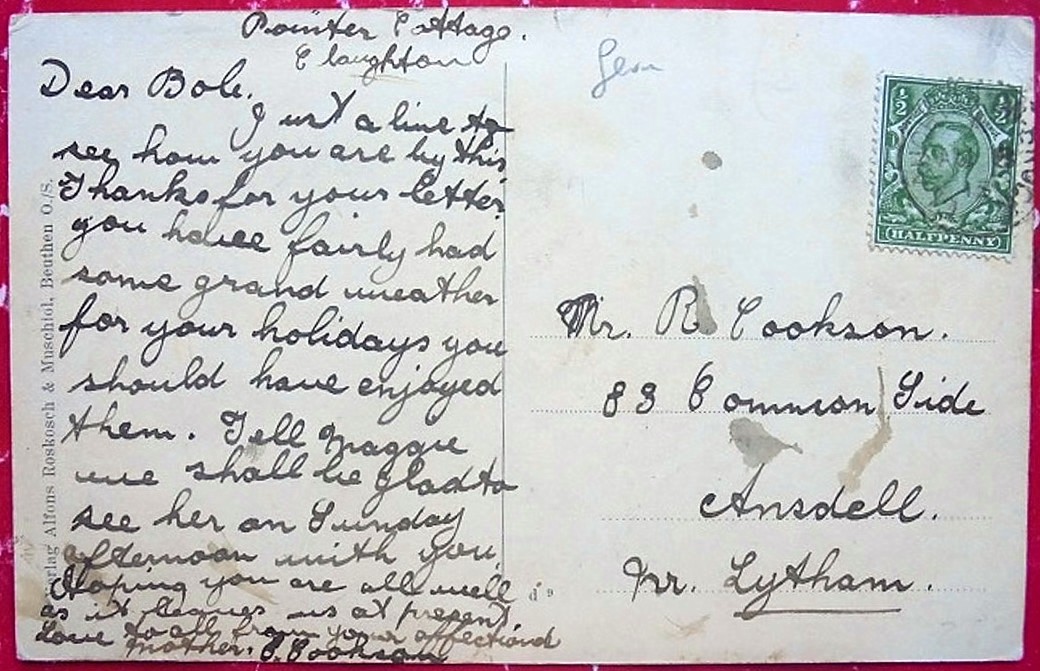 Pointer Cottage.
Claughton
Dear Bob.
Just a line to
see how you are by this
Thanks for your letter
you have fairly had
some grand weather
for your holidays you
should have enjoyed
them. Tell Maggie
we shall be glad to
see her on Sunday
afternoon with you.
Hoping you are all well
as it leaves us at present.
Love to all from your affectiond
mother. C. Cookson
Verlag Alfons Roskosch & Muschiol, Beuthen O./S.
½ ½
HALFPENNY
Mr. R Cookson.
83 Common Side
Ansdell.
Nr. Lytham.